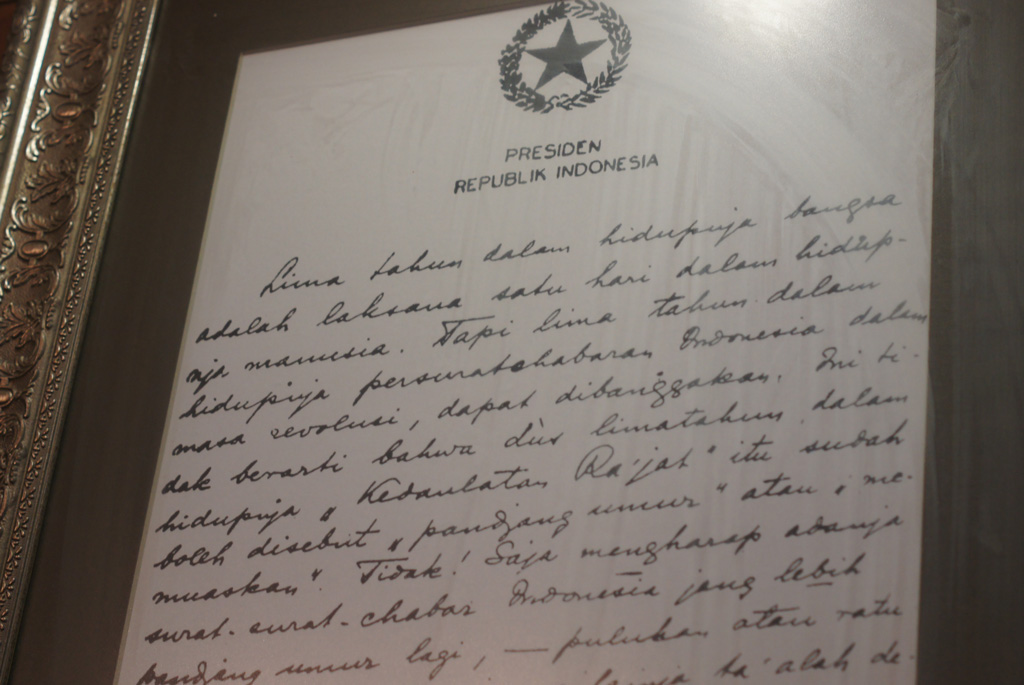 PRESIDEN
REPUBLIK INDONESIA
Lima tahun dalam hidupnja bangsa
adalah laksana satu hari dalam hidup-
nja manusia. Tapi lima tahun dalam
hidupnja persuratchabaran Indonesia dalam
masa revolusi, dapat dibanggakan. Ini ti-
dak berarti bahwa dus limatahun dalam
hidupnja „Kedaulatan Ra'jat" itu sudah
boleh disebut „pandjang umur" atau „me-
muaskan". Tidak! Saja mengharap adanja
surat-surat-chabar Indonesia jang lebih
pandjang umur lagi, — puluhan atau ratu
ta'alah de-